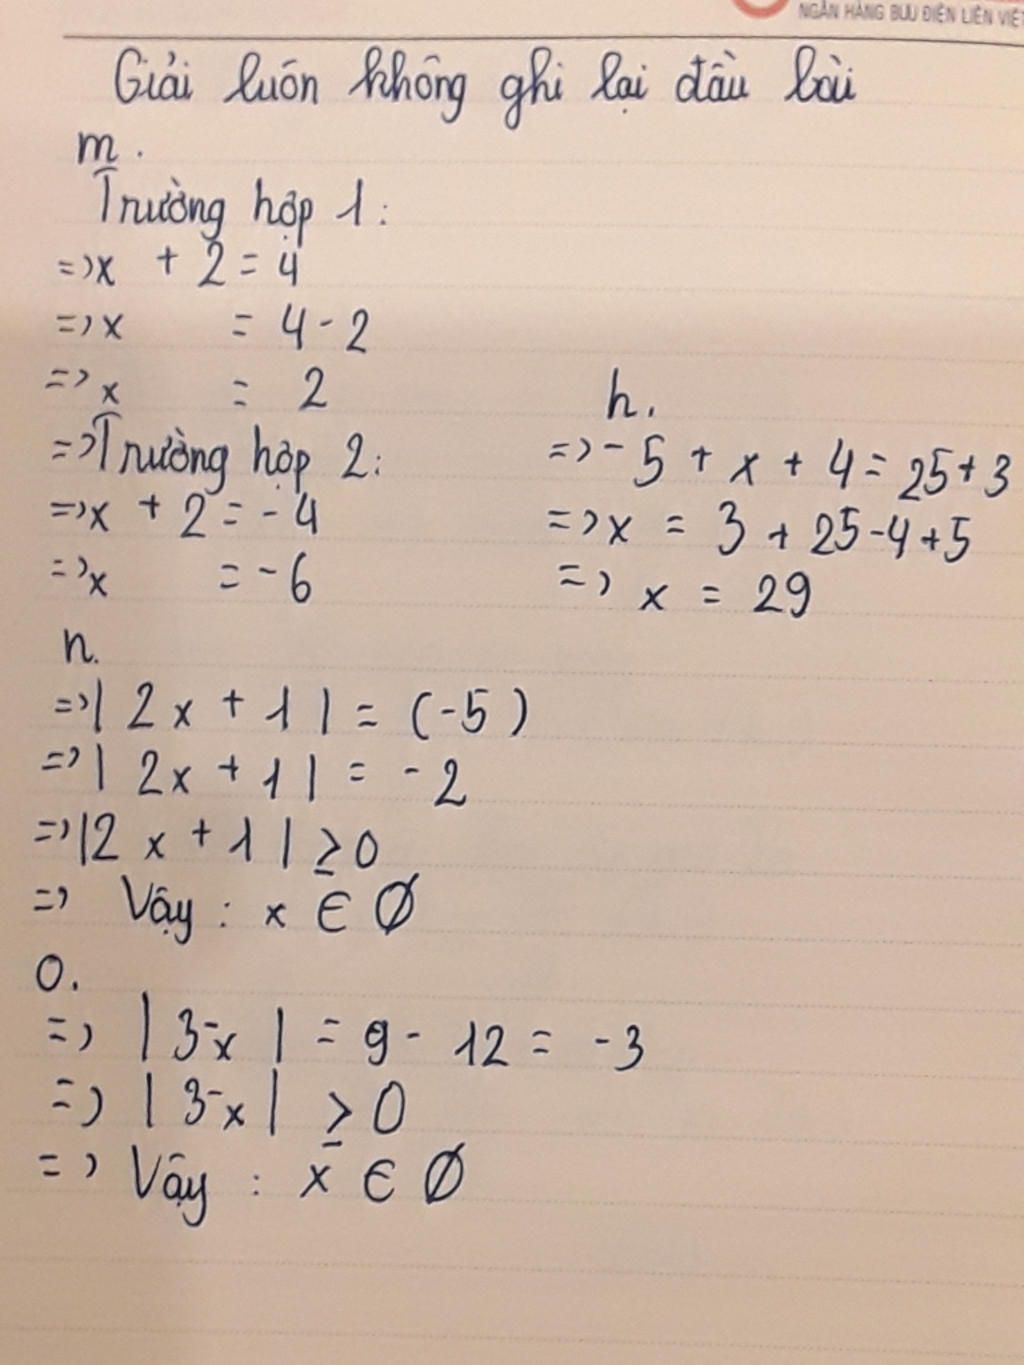 NGÂN HÀNG BƯU ĐIỆN LIÊN VIỆT
Giải luôn không ghi lại đầu bài
m.
Trường hợp 1:
=> x + 2 = 4
=> x = 4 - 2
=> x = 2
=> Trường hợp 2:
=> x + 2 = - 4
=> x = - 6
h.
=> - 5 + x + 4 = 25 + 3
=> x = 3 + 25 - 4 + 5
=> x = 29
n.
=> | 2x + 1 | = (-5)
=> | 2x + 1 | = - 2
=> |2x + 1| ≥ 0
=> Vậy : x ∈ Ø
o.
=> | 3-x | = 9 - 12 = - 3
=> | 3-x | ≥ 0
=> Vậy : x ∈ Ø